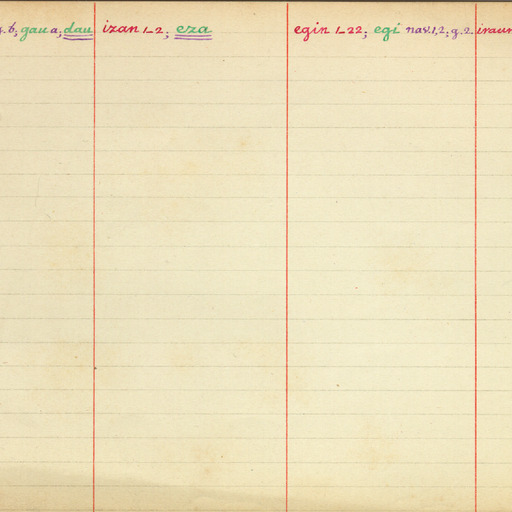 g. 6; gau a; dau izan 1_2; eza egin 1_22; egi nav. 1, 2; g. 2. iraun